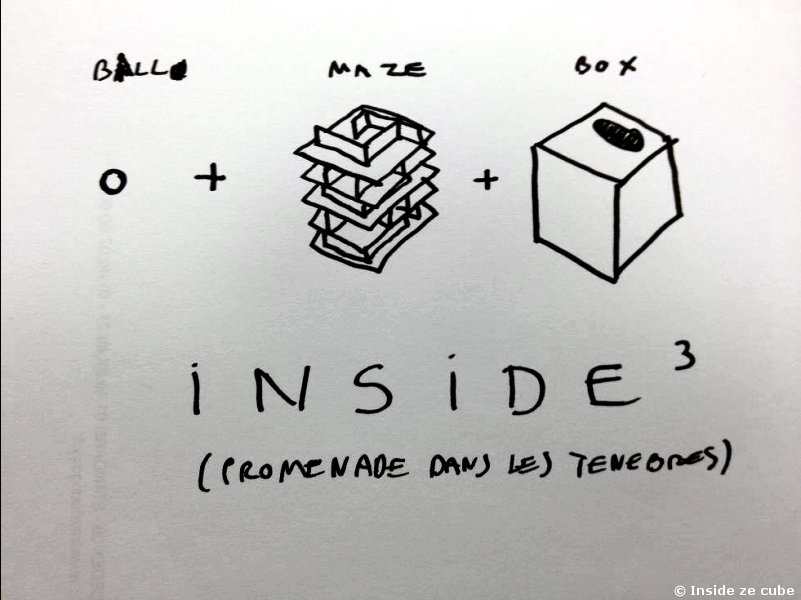 BALL MAZE BOX
+ +
INSIDE³
(PROMENADE DANS LES TENEBRES)
© Inside ze cube